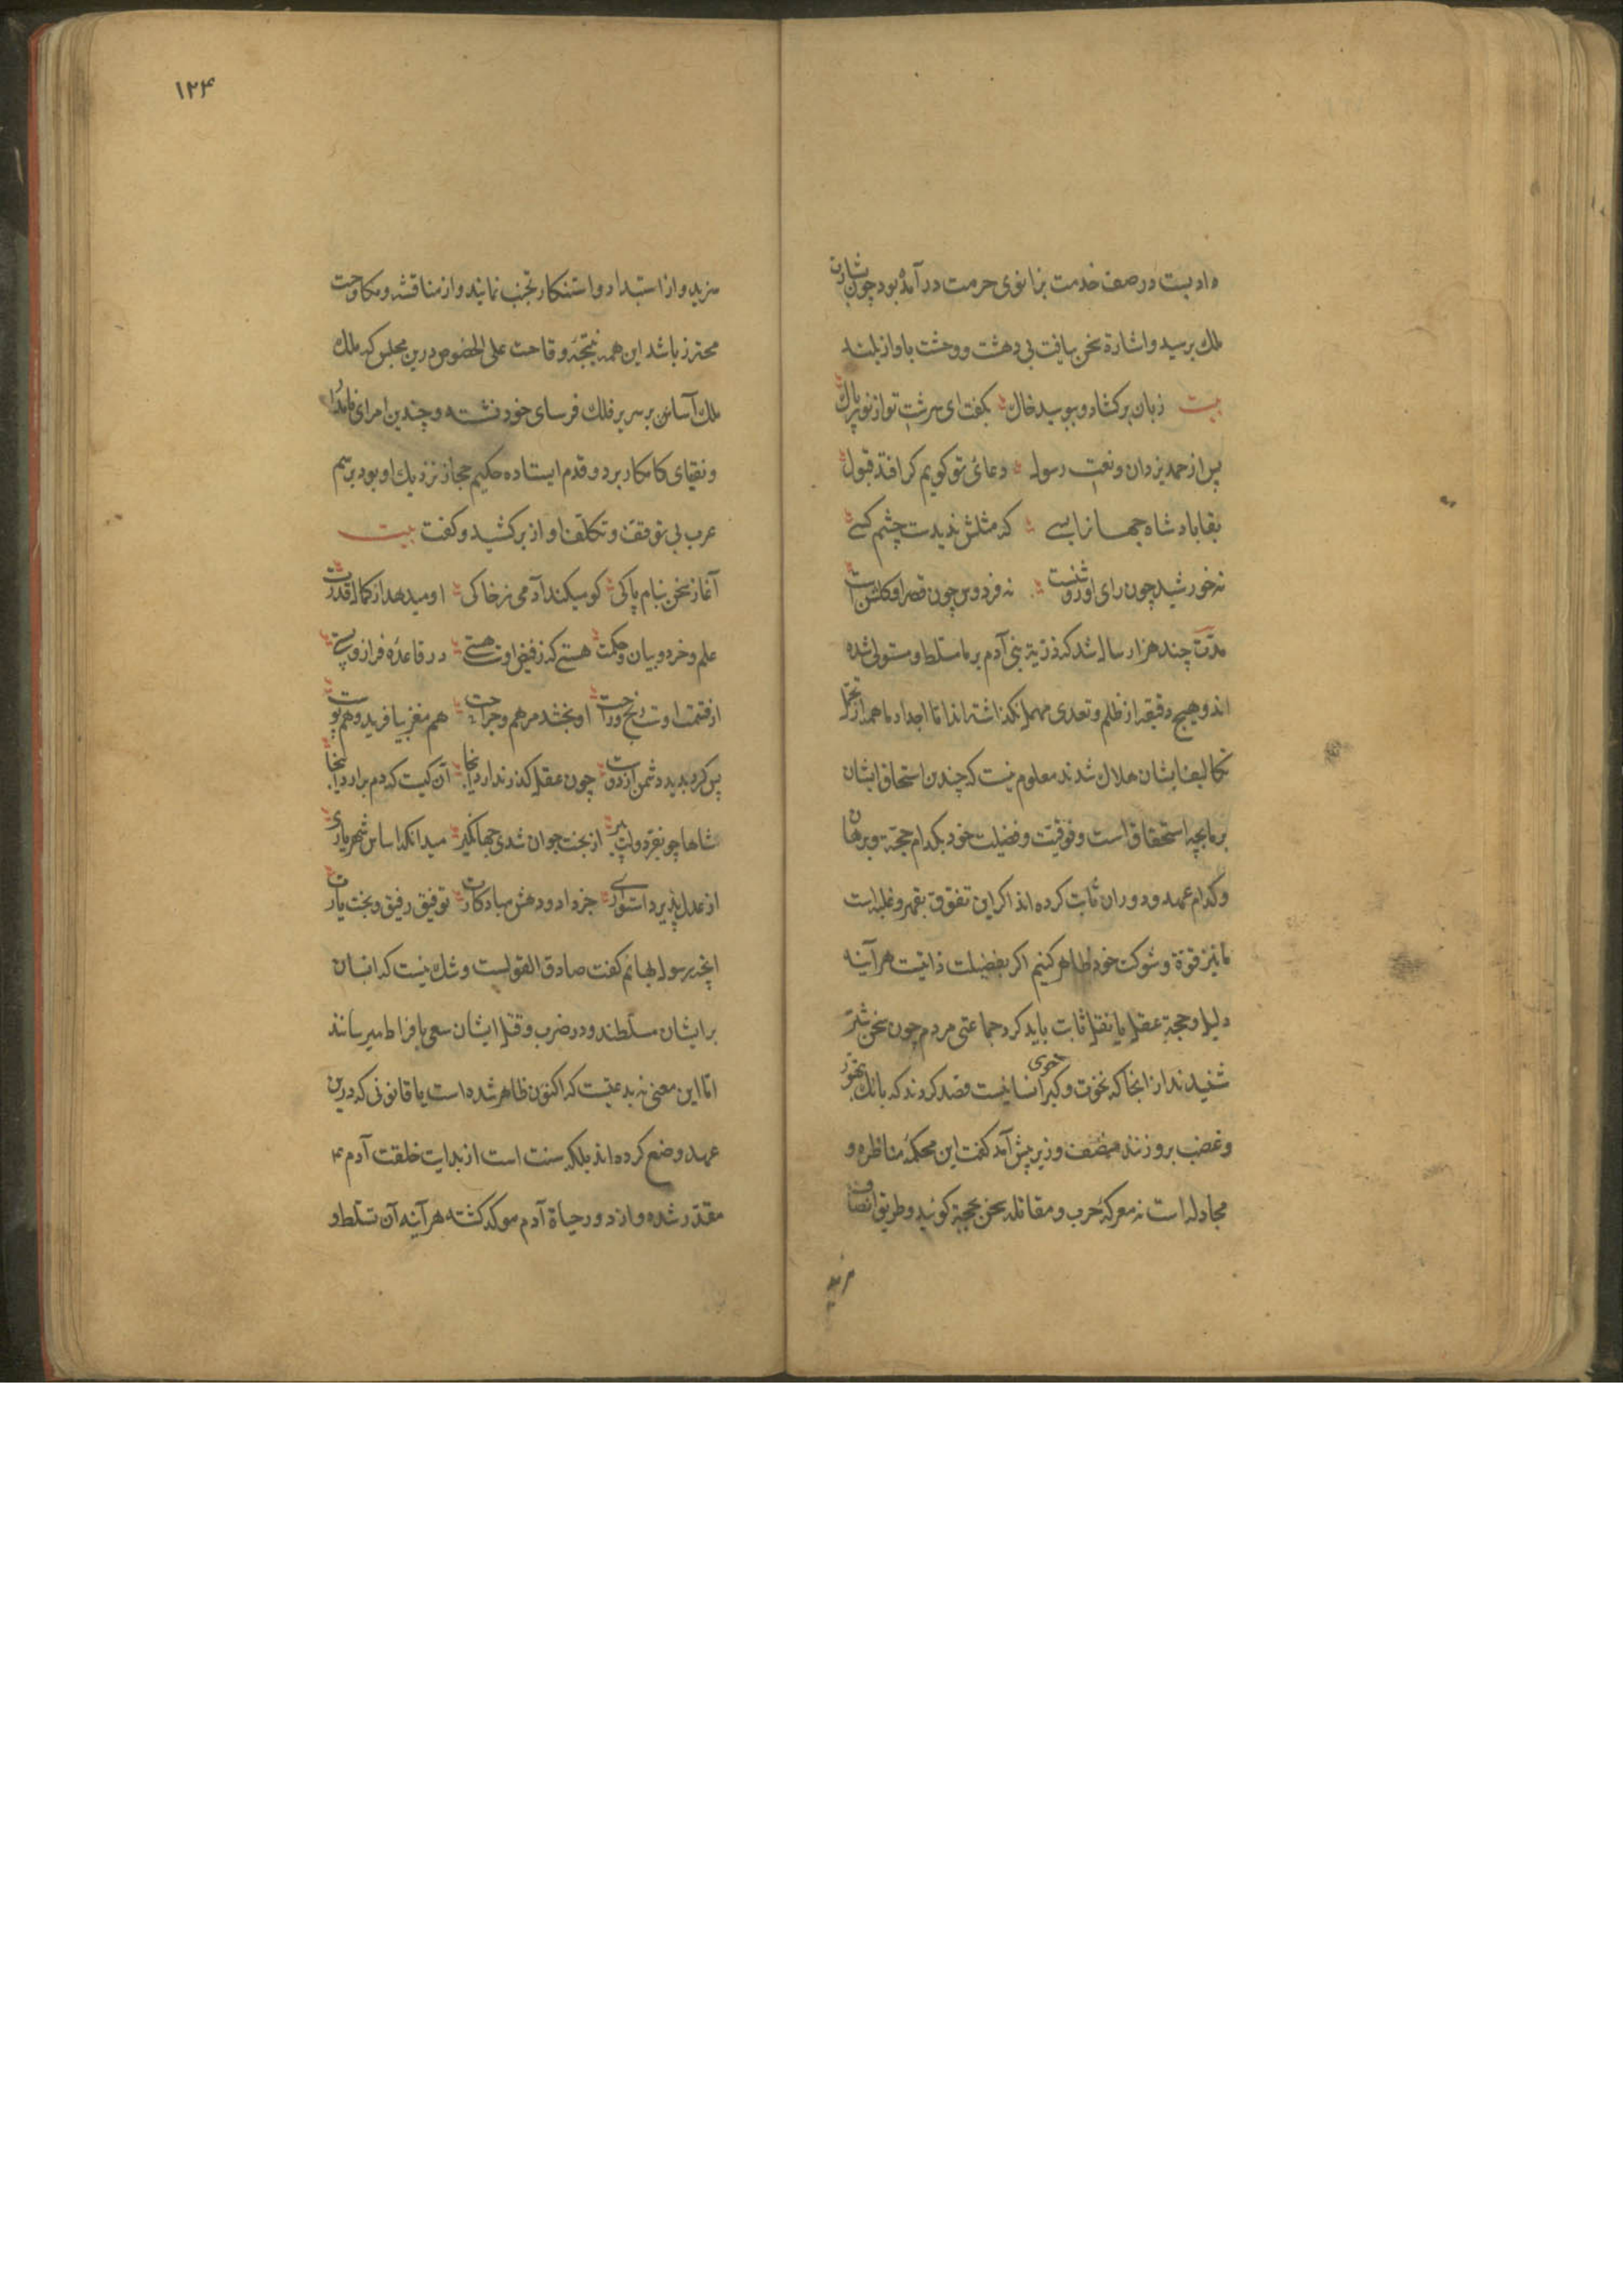 داد بیت در صف خدمت بزانوی حرمت درآمده بود چون بشارت
ملک برسید و اشارة سخن بیافت بی دهشت و وحشت باواز بلند
بیت زبان برکشاد و ببوسید خاک بکفت ای سرشت تو از نور پاک
پس از حمد یزدان و نعت رسول دعائ تو کویم کر افتد قبول
بقا باد شاه جهانرا بسے که مثلش ندیدست چشم کسے
نه خورشید چون رای او روشنست نه فردوس چون قصر او کلشن است
مدت چند هزار سال شد که ذریة بنی آدم بر ما مسلط و مستولی شده
اند و هیچ دقیقه از ظلم و تعدی مهمل نکذاشته اند تا اجداد ما همه از تحمل
تکالیف ایشان هلاک شدند معلوم نیست که چندین استحقاق ایشان
بر ما بچه استحقاق است و فوقیت و فضیلت خود بکدام حجة و برهان
و کدام عهد و دوران ثابت کرده اند اکر این تفوق بقهر و غلبه است
ما نیز قوة و شوکت خود ظاهر کنیم اکر بفضیلت ذاتیت هرآینه
دلیل و حجة عقل یا نقل ثابت باید کرد جماعتی مردم چون سخن شتر
شنیدند از انجا که نخوت و کبر انسانیست قصد کردند که بانک تهور
و غضب برو زنند منصف وزیر پیش آمد کفت این محکمهٔ مناظره و
مجادله است نه معرکهٔ حرب و مقاتله سخن بحجة کوئید و طریق انصاف
۱۲۴
مزید و از استبداد و استنکار تجنب نمایند و از مناقشه و مکاوحت
محترز باشد این همه نتیجهٔ وقاحت علی الخصوص درین مجلس که ملک
ملک آسا بر سریر فلک فرسای خود نشسته و چندین امرای نامدار
و نقبای کامکار بر دو قدم ایستاده حکیم حجاز نزدیک او بود برسم
عرب بی توقف و تکلف اواز برکشید و کفت بیت
آغاز سخن بنام پاکی کو میکند آدمی ز خاکی او میدهد از کمال قدرت
علم و خرد و بیان و حکمت هستے که ز فیض اوست هستے در قاعدهٔ فراز و پستے
از قسمت اوست رنج و راحت او بخشد مرهم و جراحت هم مغز بیافرید و هم پوست
پس کرد پدید دشمن از دوست چون عقل کذر ندارد آنجا آن کیست که دم برارد آنجا
شاها چو بفر دولت پیر از بخت جوان شدی جهانکیر میدانکه اساس شهریاری
از عدل پذیرد استواری جز داد و دهش مباد کارت توفیق رفیق و بخت یارت
انچه رسول بهائم کفت صادق القولست و شک نیست که انسان
بر ایشان مسلطند و در ضرب و قتل ایشان سعی بافراط میرسانند
اما این معنی نه بدعتیست که اکنون ظاهر شده است یا قانونی که درین
عهد وضع کرده اند بلکه سنت است از بدایت خلقت آدم ۴
مقدر شده و از دور حیاة آدم موکد کشته هرآینه آن تسلط و